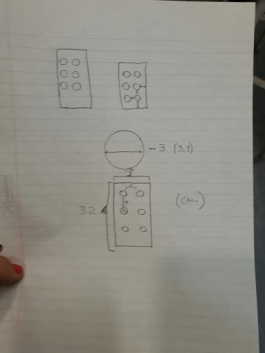 3 (3,1)
32
(cm)